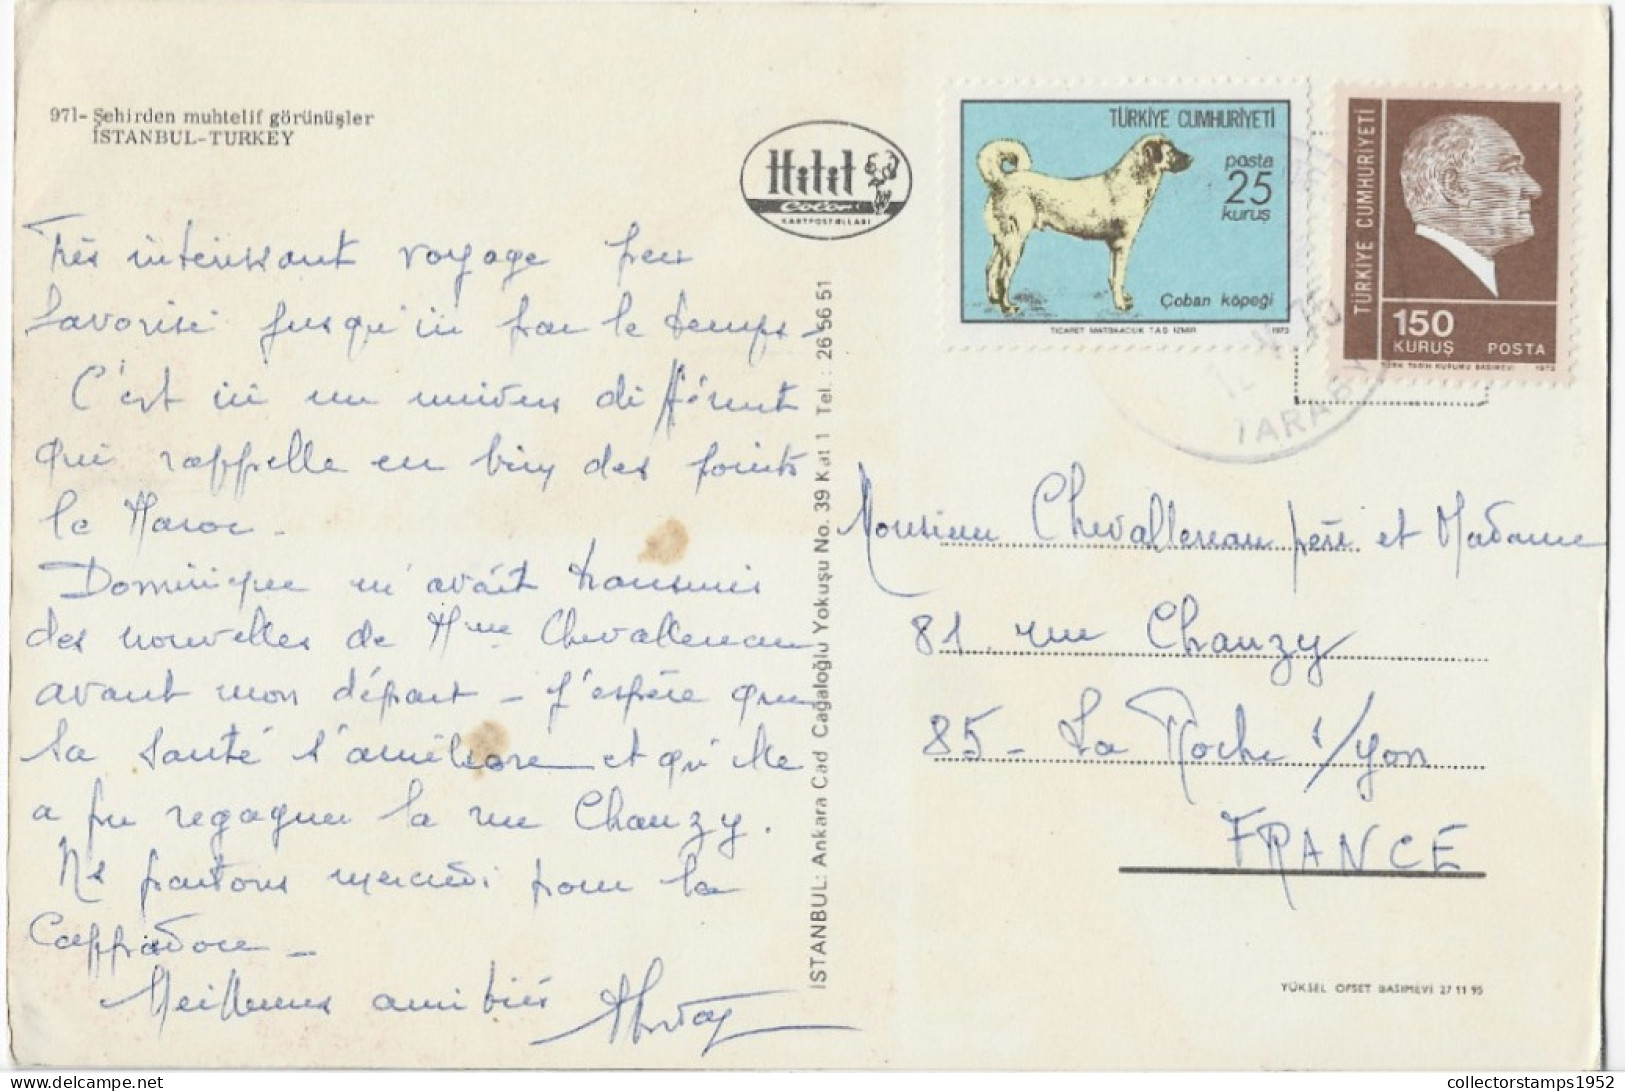 971- Şehirden muhtelif görünüşler
İSTANBUL-TURKEY
Hitit
Color
KARTPOSTALLARI
Très intéressant voyage peu
favorisé jusqu'ici par le temps -
C'est ici un univers différent
qui rappelle en bien des points
le Maroc -
Dominique m'avait transmis
des nouvelles de Mme Chevallereau
avant mon départ - J'espère que
sa santé s'améliore et qu'elle
a pu regagner la rue Chanzy.
Ns partons mercredi pour la
Cappadoce -
Meilleures amitiés
İSTANBUL: Ankara Cad Cağaloğlu Yokuşu No. 39 Kat 1 Tel. : 26 56 51
TÜRKİYE CUMHURİYETİ
posta
25
kuruş
Çoban köpeği
TİCARET MATBAACILIK TAŞ İZMİR 1973
TÜRKİYE CUMHURİYETİ
150
KURUŞ POSTA
TÜRK TARİH KURUMU BASIMEVİ 1972
TARABY
Monsieur Chevallereau père et Madame
81. rue Chanzy
85 - La Roche s/yon
FRANCE
YÜKSEL OFSET BASIMEVİ 27 11 95
collectorstamps1952